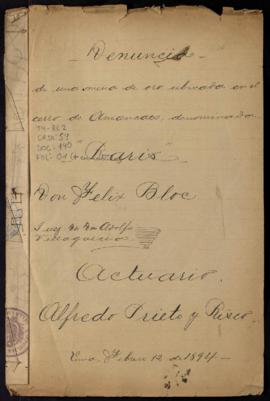 Denuncia
de una mina de oro ubicada en el
cerro de Amancaes, denominada
"Paris"
TH-RE2
CAJA: 59
DOC: 140
FOL: 01
Don Felix Bloc
Juez Dr. Dn Adolfo
Villagarcia
Actuario.
Alfredo Prieto y Risco.
Lima, Febrero 12 de 1894